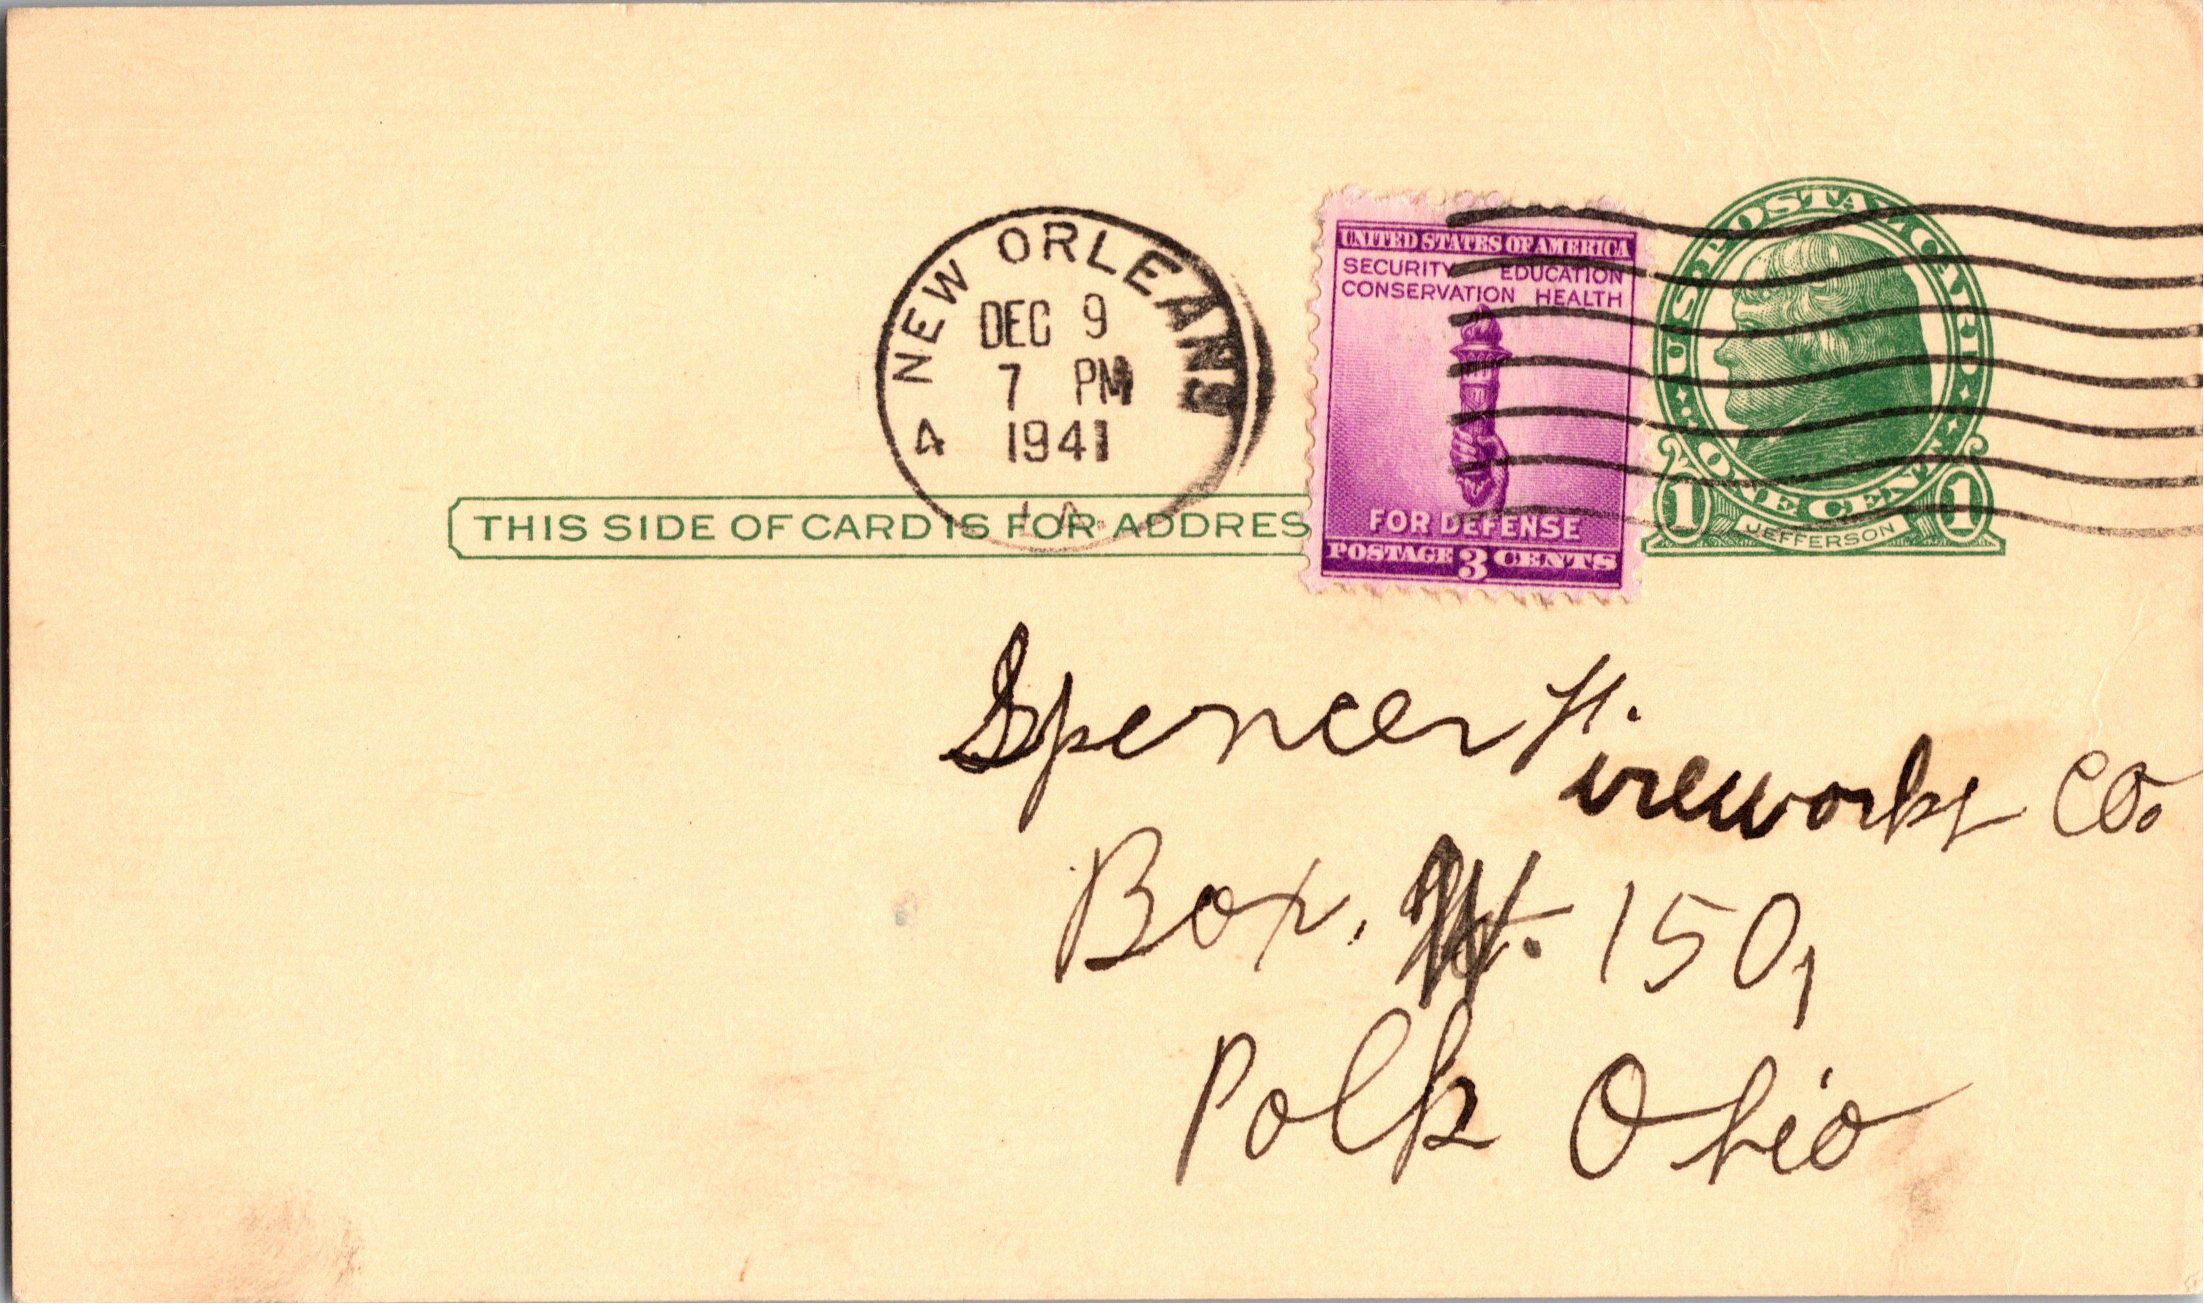 NEW ORLEANS
DEC 9
7 PM
1941
4
LA.
UNITED STATES OF AMERICA
SECURITY EDUCATION
CONSERVATION HEALTH
FOR DEFENSE
POSTAGE 3 CENTS
U.S. POSTAL CARD
ONE CENT
1 JEFFERSON 1
THIS SIDE OF CARD IS FOR ADDRES
Spencer
ireworks Co.
Box, 150,
Polk Ohio